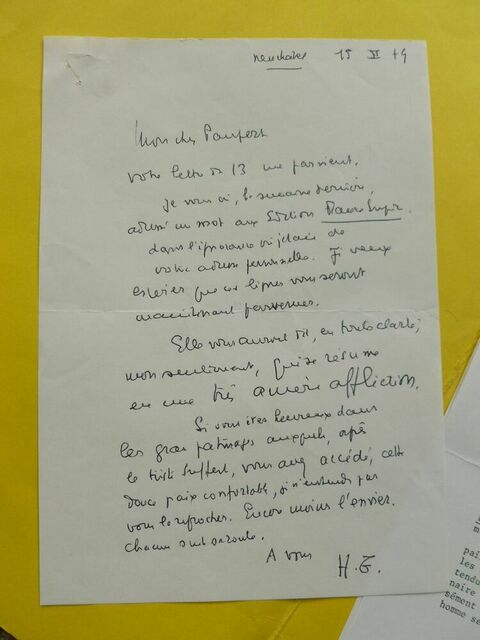 Neuchâtel 15 XI 79
Mon cher Paupert
votre lettre du 13 me parvient.
Je vous ai, la semaine dernière,
adressé un mot aux Editions
dans l'ignorance où j'étais de
votre adresse personnelle. Je veux
espérer que ces lignes vous seront
maintenant parvenues.
Elles vous auront dit, en toute clarté,
mon sentiment, qui se résume
en une très amère affliction.
Si vous êtes heureux dans
les gras pâturages auxquels, après
le triste Suffert, vous avez accédé, cette
douce paix confortable, je n'entends pas
vous la reprocher. Encore moins l'envier.
Chacun suit sa route.
A vous
H.G.
pai
les
tendu
naire
sément
homme se